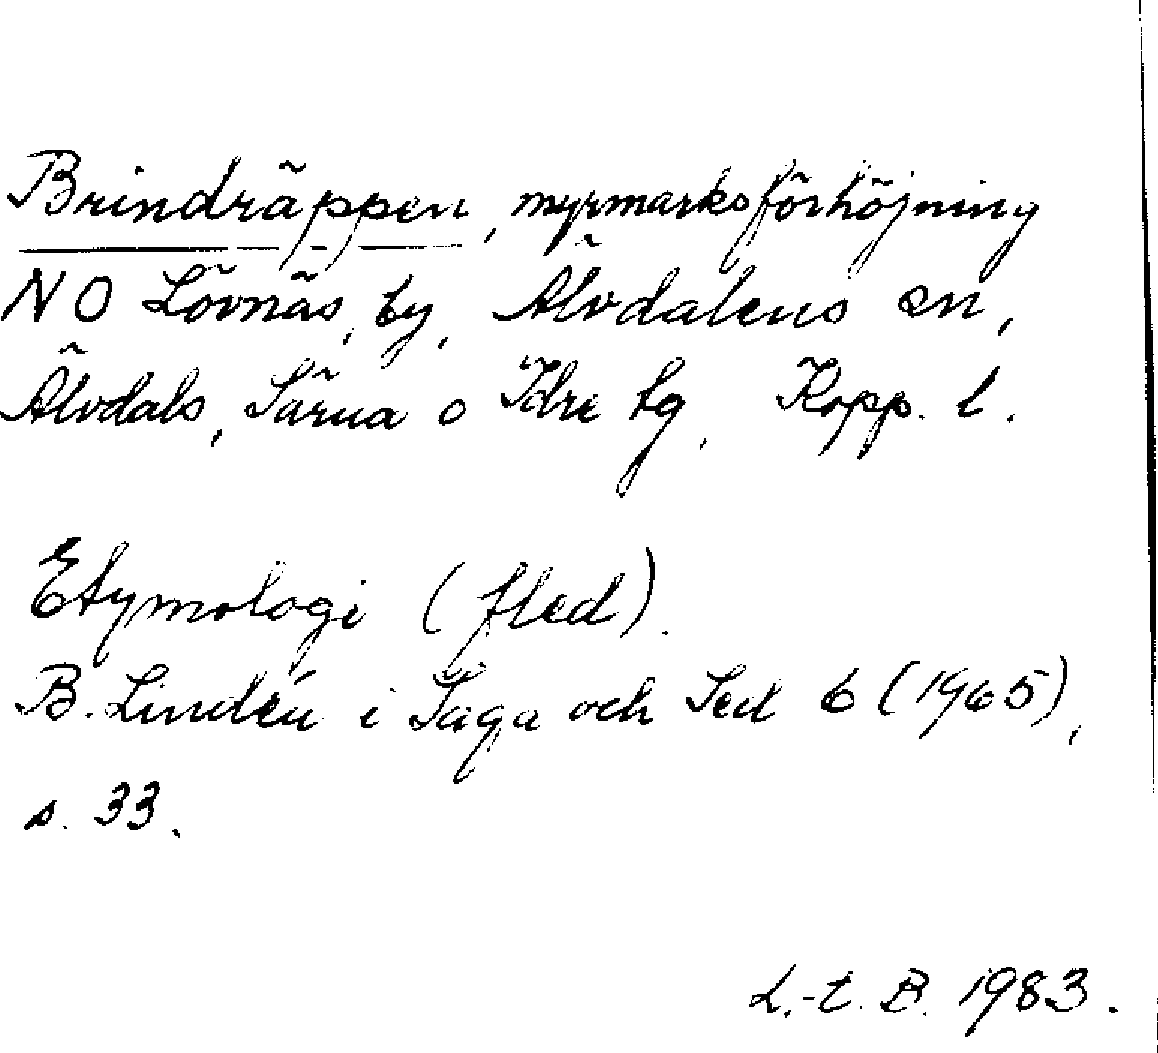 Brindräppen, myrmarksförhöjning
NO Lövnäs, by, Älvdalens sn,
Älvdals, Särna o Idre tg, Kopp. l.
Etymologi (fled).
B. Lindén i Saga och Sed 6 (1965),
s. 33.
L.-E. B. 1983.